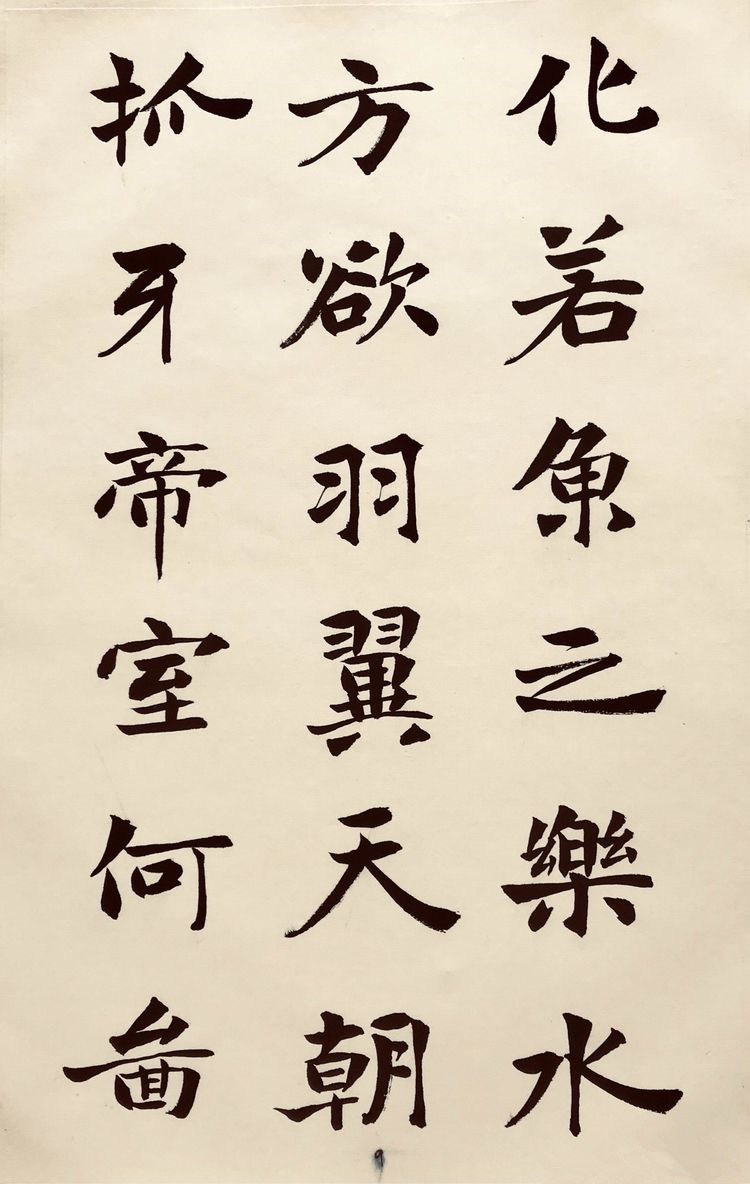 化若魚之樂水
方欲羽翼天朝
抓牙帝室何啚
9